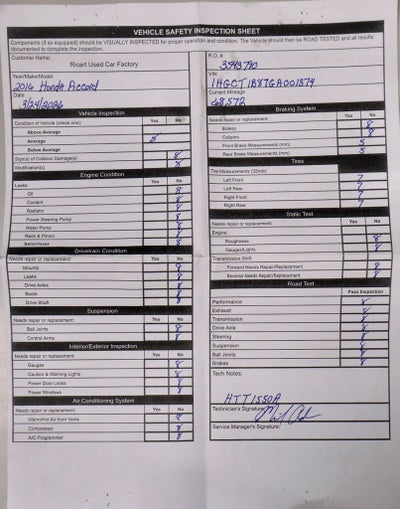 VEHICLE SAFETY INSPECTION SHEET
Components (if so equipped) should be VISUALLY INSPECTED for proper operation and condition. The Vehicle should then be ROAD TESTED and all results
documented to complete the inspection.
Customer Name:
Ricart Used Car Factory
Year/Make/Model
2016 Honda Accord
Date
3/24/2026
Vehicle Inspection
Condition of Vehicle (check one): Yes No
Above Average
Average
Below Average
Sign(s) of Collision Damage(s)
Modification(s)
Engine Condition
Leaks: Yes No
Oil
Coolant
Radiator
Power Steering Pump
Water Pump
Rack & Pinion
Belts/Hoses
Drivetrain Condition
Needs repair or replacement: Yes No
Mounts
Leaks
Drive Axles
Boots
Drive Shaft
Suspension
Needs repair or replacement: Yes No
Ball Joints
Control Arms
Interior/Exterior Inspection
Needs repair or replacement: Yes No
Gauges
Caution & Warning Lights
Power Door Locks
Power Windows
Air Conditioning System
Needs repair or replacement: Yes No
Warm/Hot Air from Vents
Compressor
A/C Programmer
R.O. #
3543790
VIN
1HGCT1B87GA001574
Current Mileage
68,572
Braking System
Needs repair or replacement Yes No
Brakes
Calipers
Front Brake Measurements (mm) 5
Rear Brake Measurements (mm) 5
Tires
Tire Measurements (32nds)
Left Front 7
Left Rear 7
Right Front 7
Right Rear 7
Static Test
Needs repair or replacement: Yes No
Engine:
Roughness
Gauges/Lights
Transmission Shift:
Forward Needs Repair/Replacement
Reverse Needs Repair/Replacement
Road Test
Pass Inspection
Performance
Exhaust
Transmission
Drive Axle
Steering
Suspension
Ball Joints
Brakes
Tech Notes:
HTT1550A
Technician's Signature:
Service Manager's Signature: